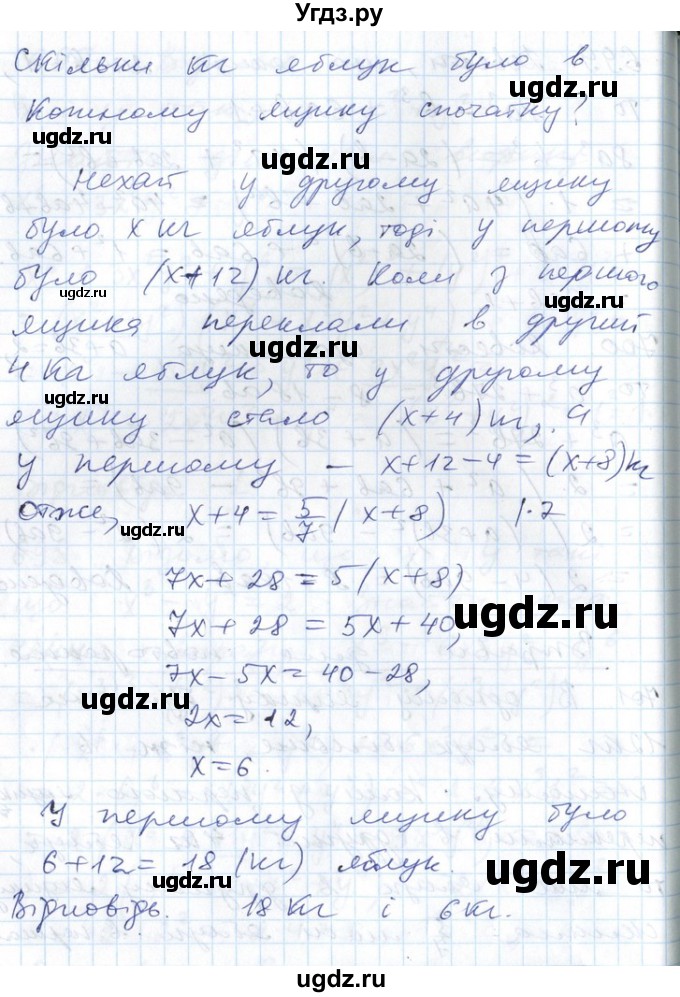 Угдз.ру
Скільки кг яблук було в
ugdz.ru
кожному ящику спочатку?
ugdz.ru
ugdz.ru
Нехай у другому ящику
ugdz.ru
ugdz.ru
було x кг яблук, тоді у першому
було (x+12) кг. Коли з першого
ugdz.ru
ugdz.ru
ящика переклали в другий
ugdz.ru
4 кг яблук, то у другому
ugdz.ru
ugdz.ru
ящику стало (x+4) кг, а
у першому – x+12-4 = (x+8) кг
ugdz.ru
Отже, x+4 = 5/7 (x+8) |·7
ugdz.ru
ugdz.ru
7x + 28 = 5(x+8)
ugdz.ru
7x + 28 = 5x + 40,
7x - 5x = 40 - 28,
ugdz.ru
ugdz.ru
2x = 12,
x = 6.
ugdz.ru
У першому ящику було
6+12 = 18 (кг) яблук.
ugdz.ru
ugdz.ru
Відповідь. 18 кг і 6 кг.
ugdz.ru
ugdz.ru
Угдз.ру